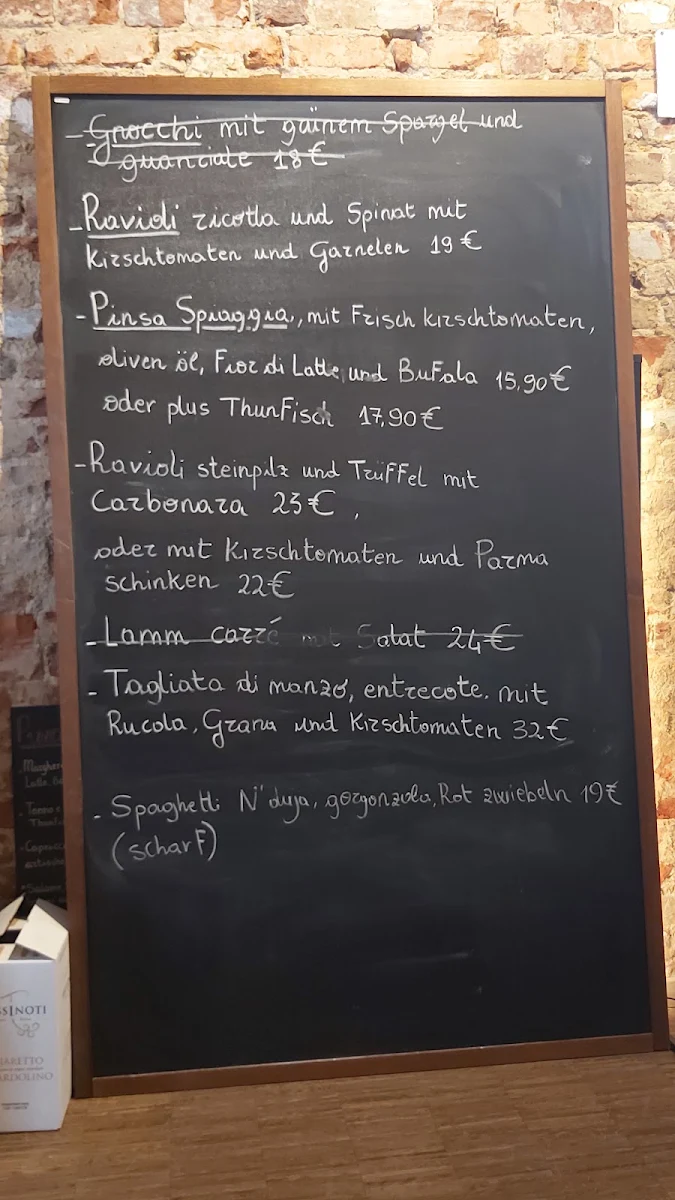 - Gnocchi mit gaïnem Spargel und
guanciale 18€
- Ravioli ricotta und Spinat mit
Kirschtomaten und Garnelen 19€
- Pinsa Spiaggia, mit Frisch kirschtomaten,
oliven öl, Fior di Latte, und BuFala 15,90€
oder plus ThunFisch 17,90€
- Ravioli steinpilz und TrüFFel mit
Carbonara 23€,
oder mit Kirschtomaten und Parma
schinken 22€
- Lamm carré mit Salat 24€
- Tagliata di manzo, entrecote. mit
Rucola, Grana und Kirschtomaten 32€
- Spaghetti N'duja, gorgonzola, Rot zwiebeln 19€
(scharF)
SSINOTI
ARETTO
ARDOLINO